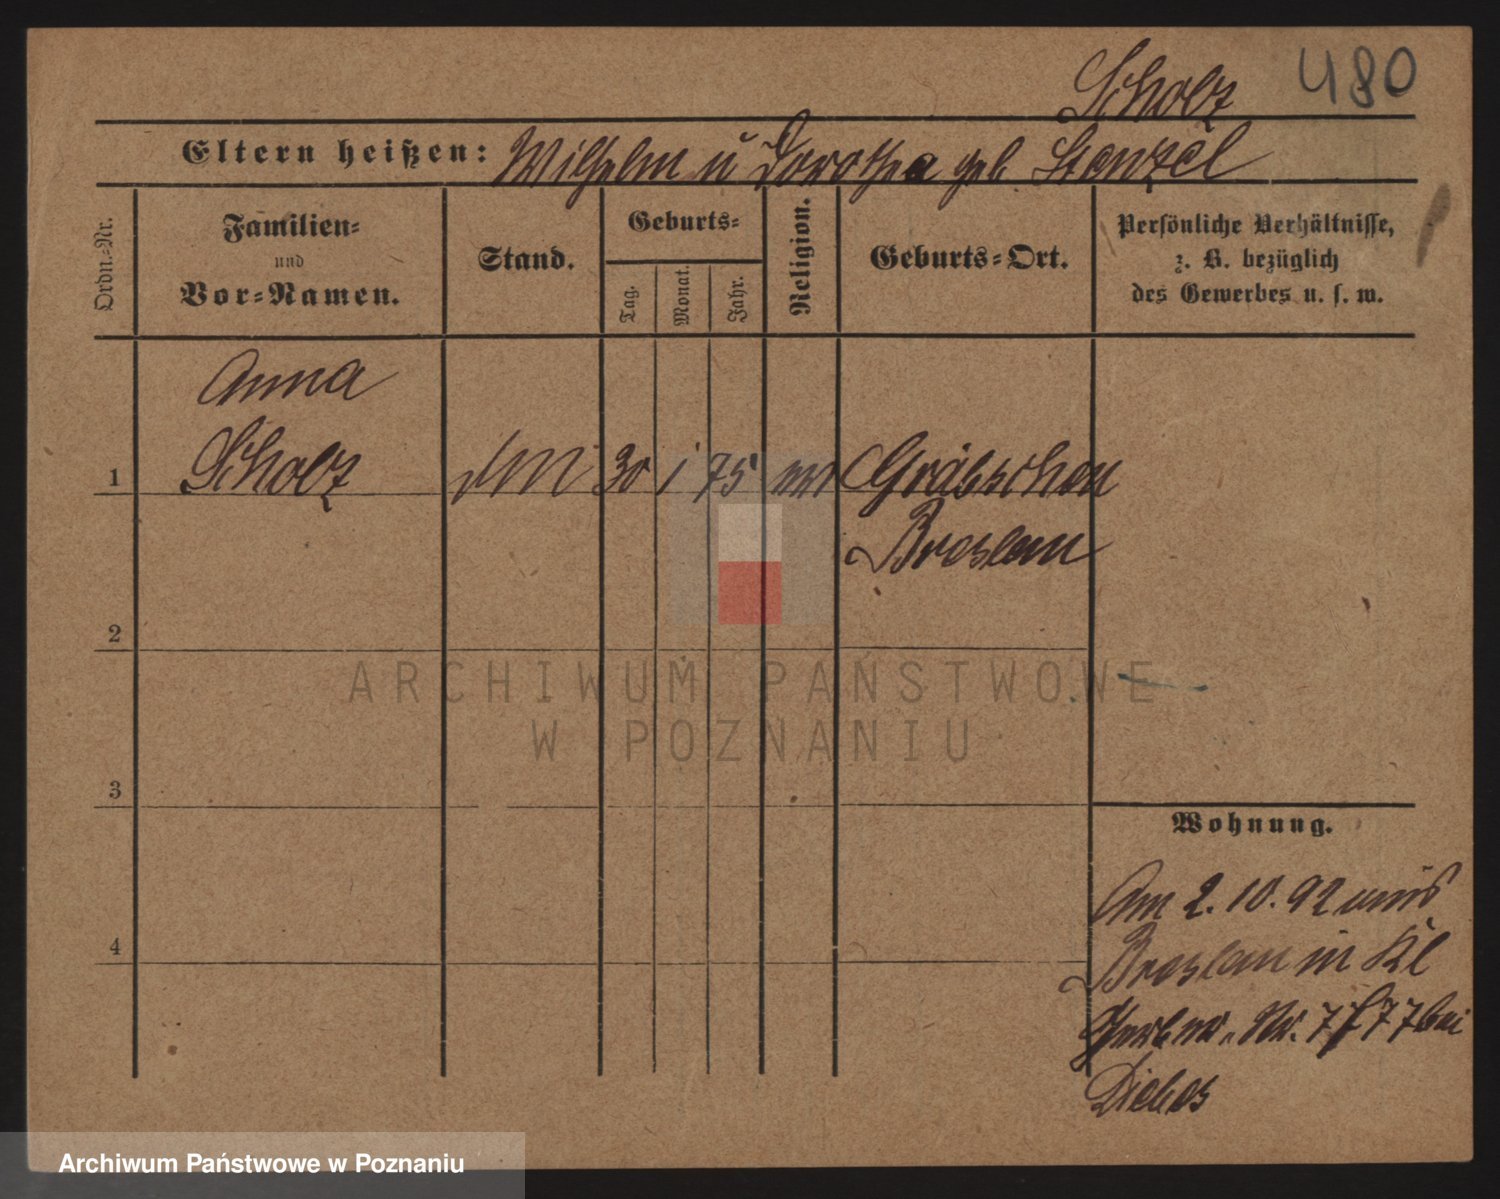 Scholz 480
Eltern heißen: Wilhelm u Dorothea geb. Stenzel
Ordn.-Nr.
Familien-
und
Vor-Namen.
Stand.
Geburts-
Tag.
Monat.
Jahr.
Religion.
Geburts-Ort.
Persönliche Verhältnisse,
z. B. bezüglich
des Gewerbes u. s. w.
Anna
1 Scholz 30 1 75 Gräbschen
Breslau
2
3
4
ARCHIWUM PAŃSTWOWE
W POZNANIU
Wohnung.
Am 2. 10. 92 aus
Breslau in Kl
Gerber Nr. 7 bei
Archiwum Państwowe w Poznaniu